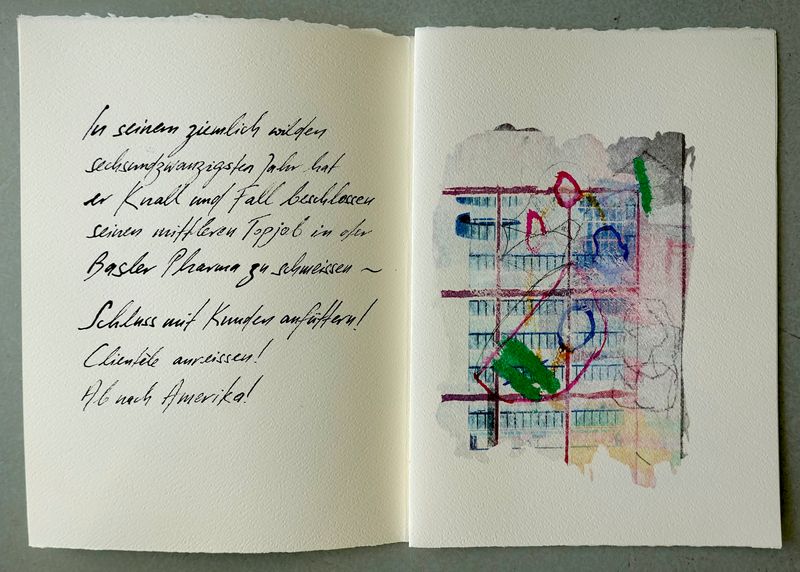 In seinem ziemlich wilden
sechsundzwanzigsten Jahr hat
er Knall und Fall beschlossen
seinen mittleren Topjob in der
Basler Pharma zu schmeissen ~
Schluss mit Kunden anfüttern!
Clientèle anreissen!
Ab nach Amerika!